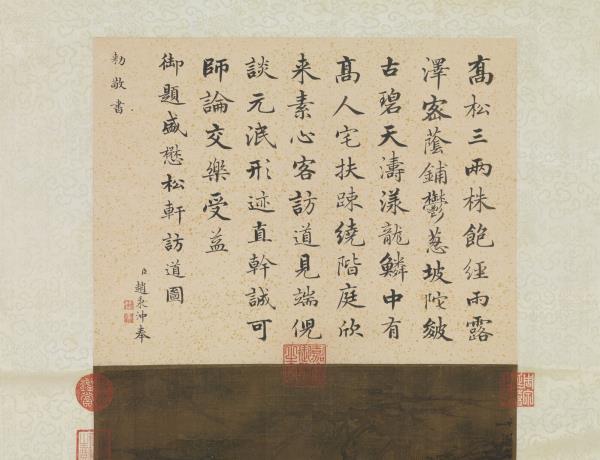 髙松三兩株飽經雨露
澤密蔭鋪鬱葱坡陀皴
古碧天濤漾龍鱗中有
髙人宅扶踈繞階庭欣
来素心客訪道見端倪
談元泯形迹直幹誠可
師論交樂受益
御題盛懋松軒訪道圖
臣趙秉沖奉
勅敬書